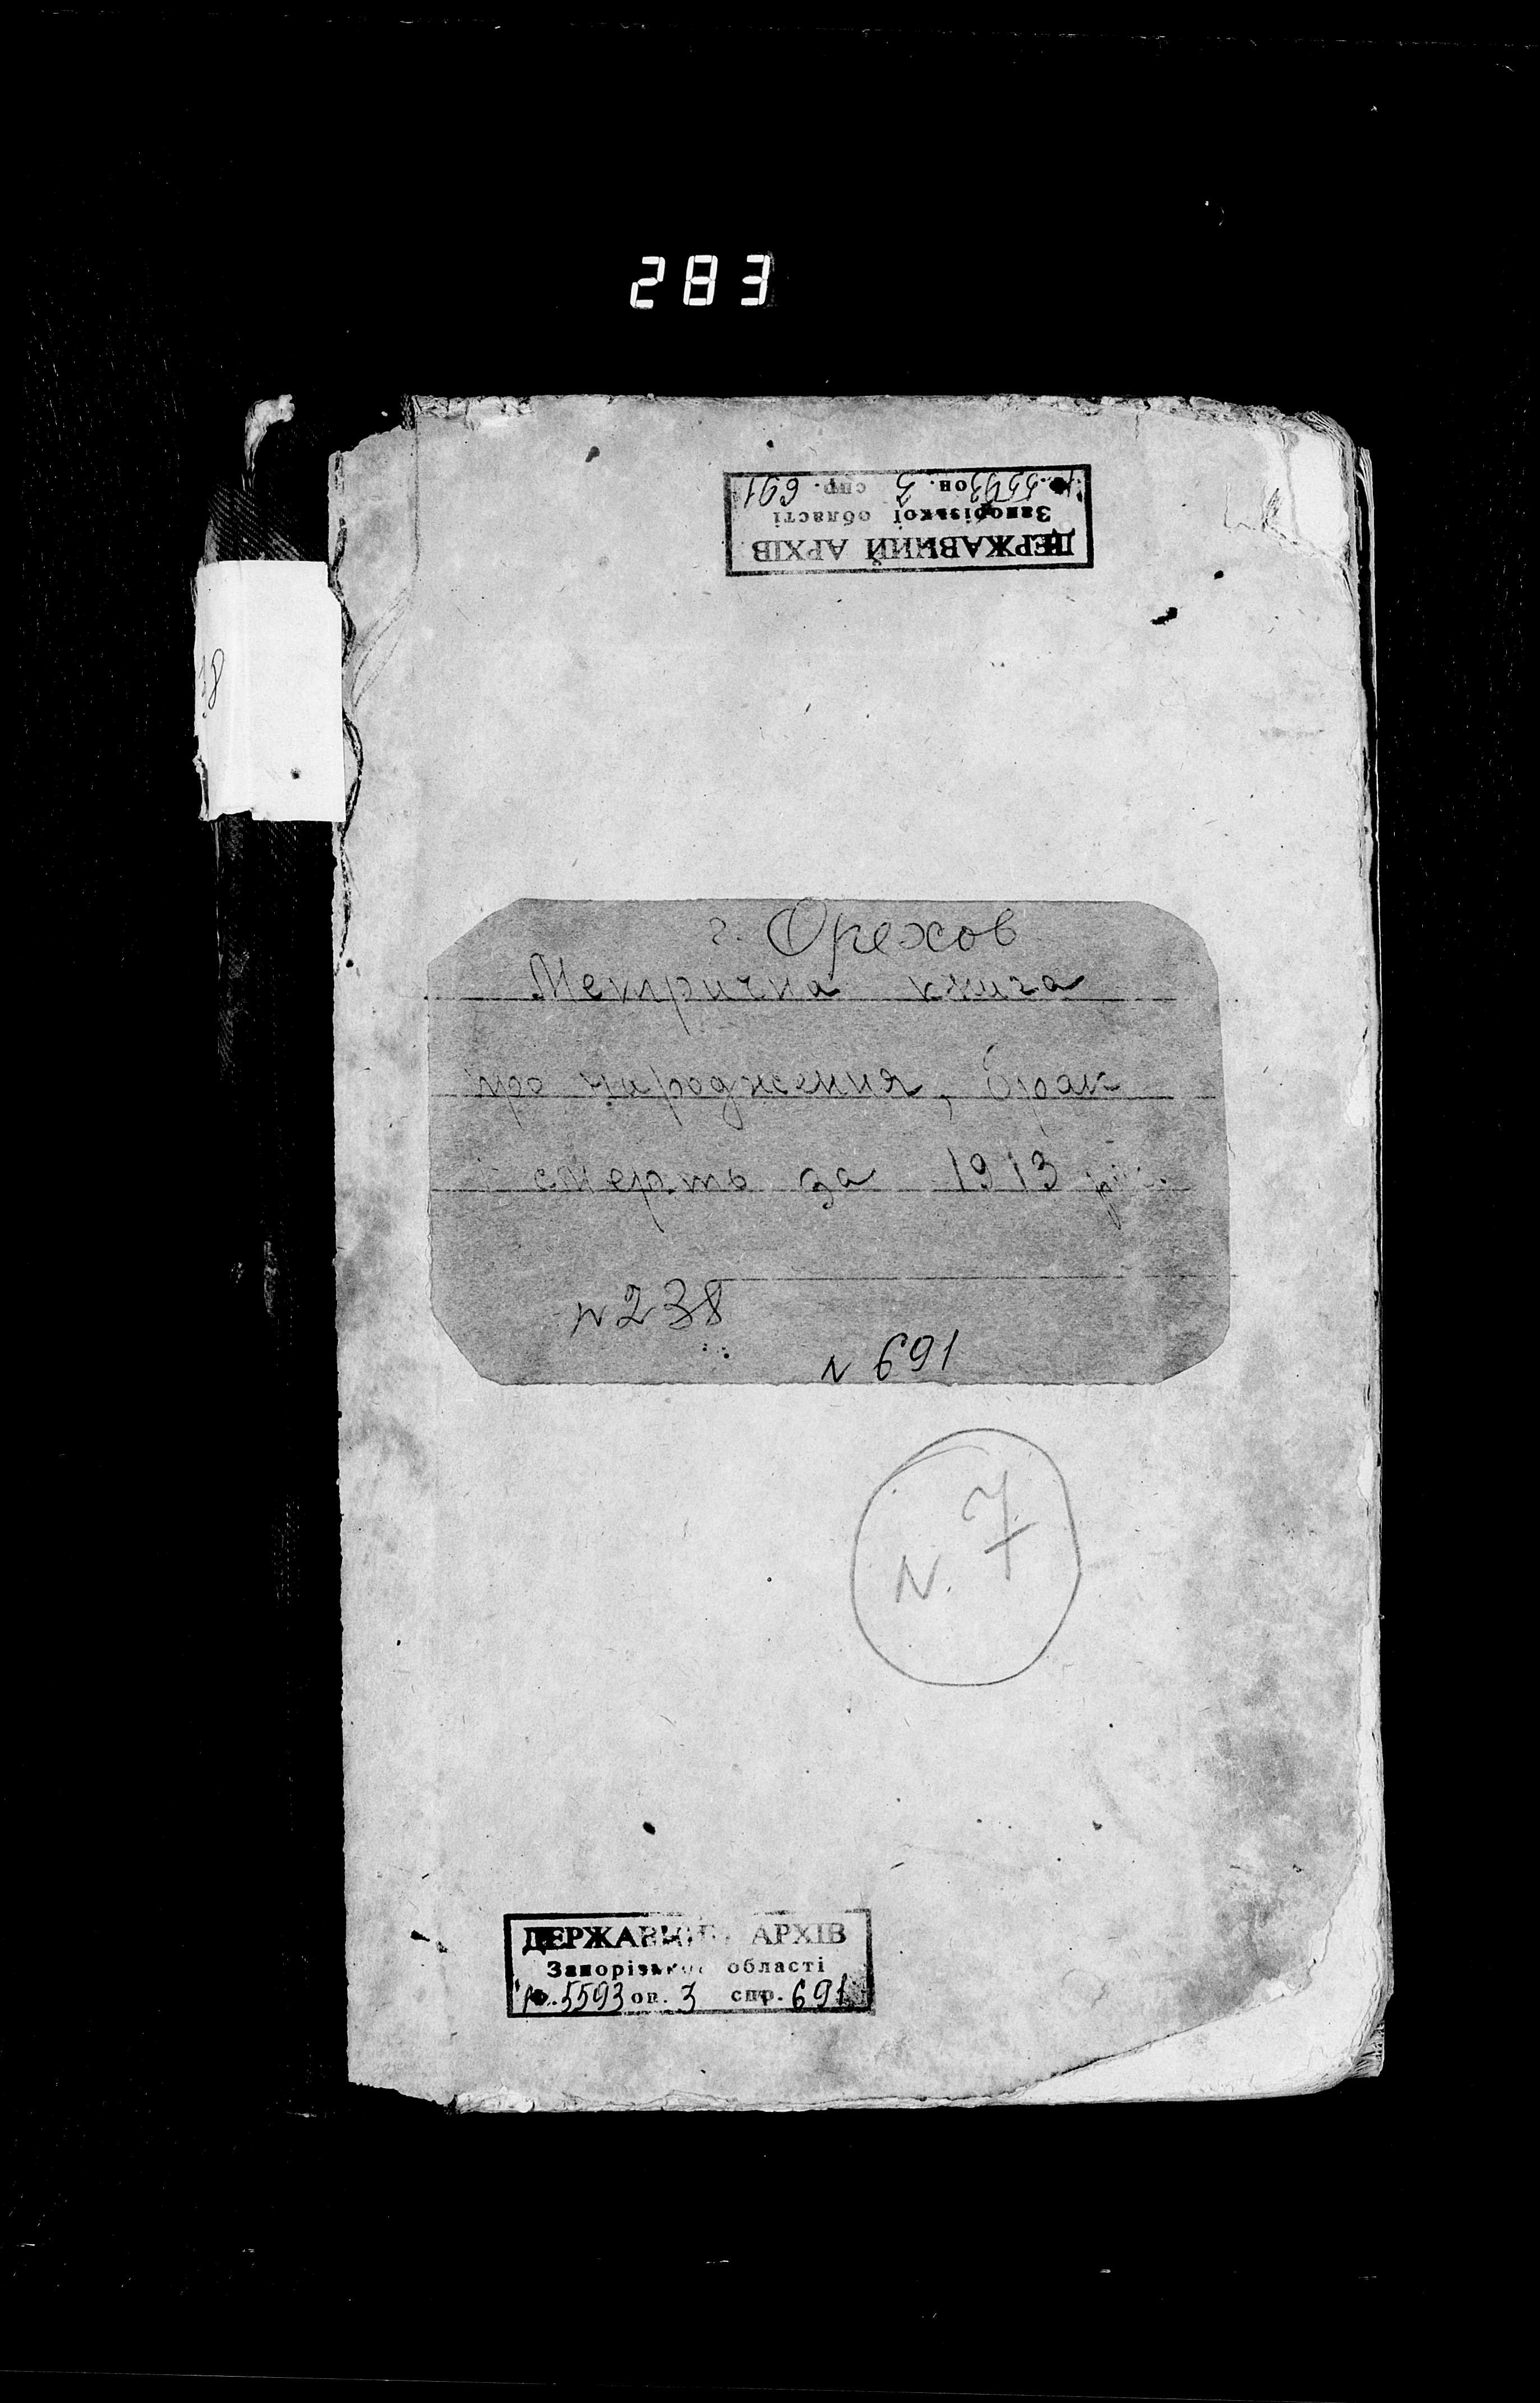 283
ф. 5593 оп. 3 спр. 691
Запорізької області
ДЕРЖАВНИЙ АРХІВ
38
г. Орехов
Метрична книга
про народження, брак
і смерть за 1913 рік.
N 238
N 691
N. 7
ДЕРЖАВНИЙ АРХІВ
Запорізької області
ф. 5593 оп. 3 спр. 691